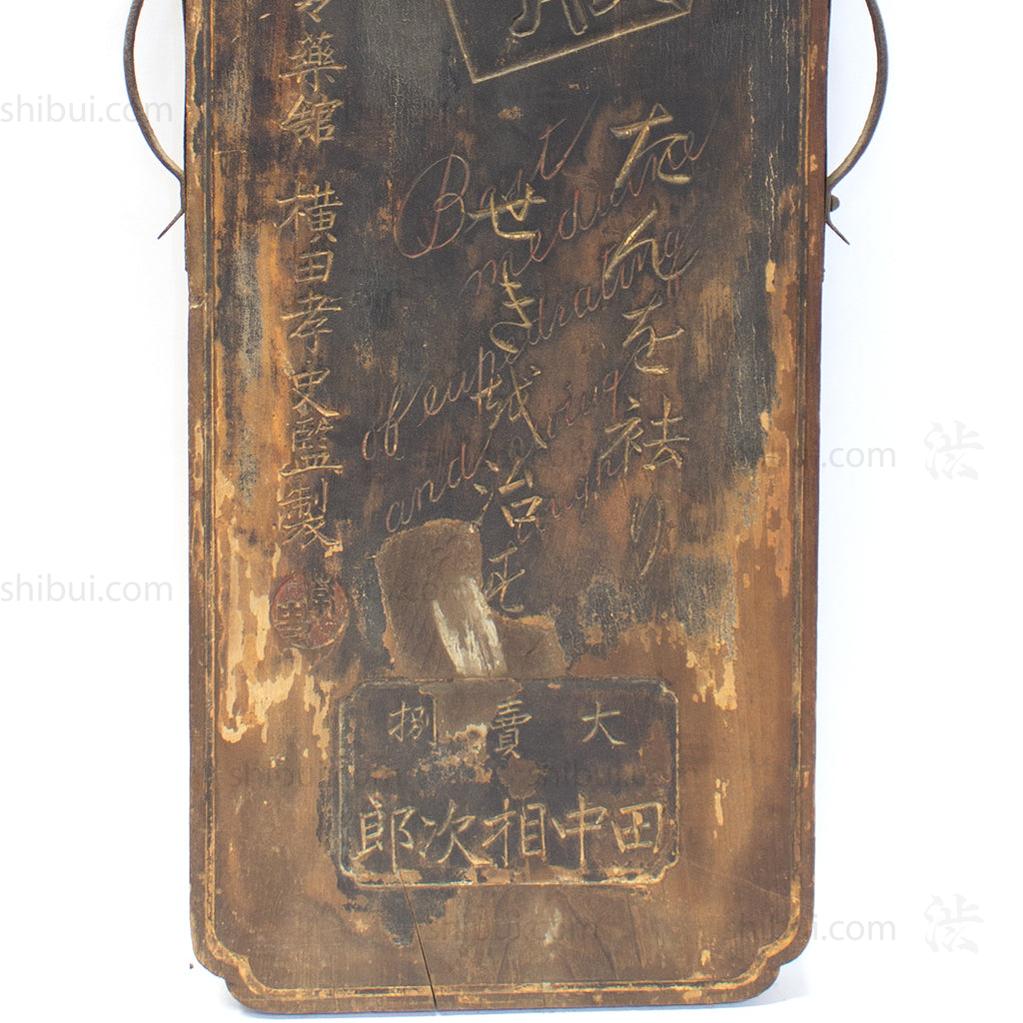 たんを祛り
せき越治す
Best
medicine
of eupedrating
and
藥館 橫田孝史監製
大賣捌
田中相次郎
shibui.com
shibui.com
shibui.com
shibui.com
shibui.com
shibui.com
shibui.com
shibui.com
渋
渋